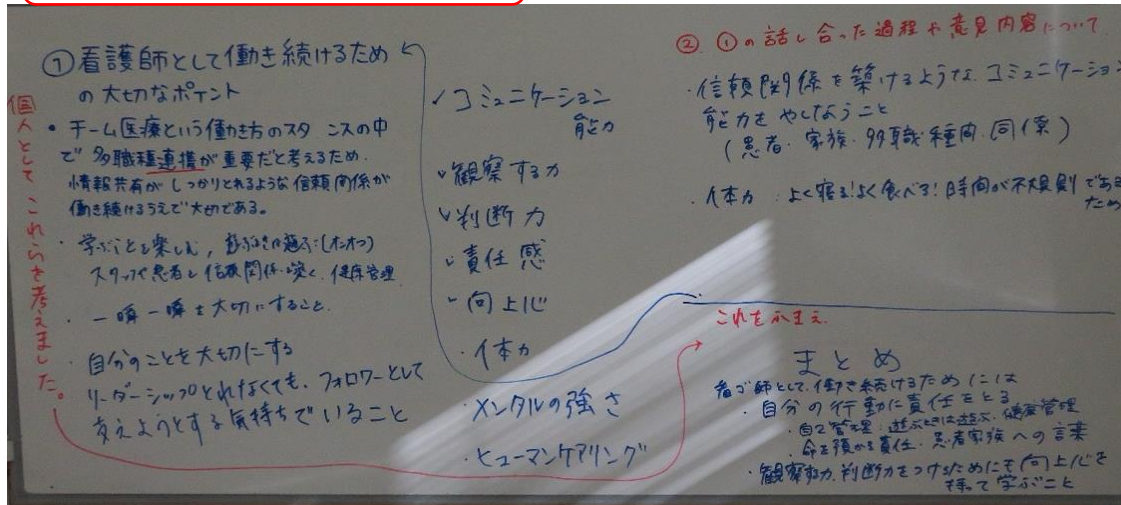 ① 看護師として働き続けるため
の大切なポテント
・チーム医療という働き方のスタンスの中
で多職種連携が重要だと考えるため、
情報共有がしっかりとれるような信頼関係が
働き続けるうえで大切である。
・学ぶことを楽しむ,
スタッフや患者と信頼関係を築く、健康管理
・一瞬一瞬を大切にすること、
・自分のことを大切にする
リーダーシップとれなくても、フォロワーとして
支えようとする気持ちでいること
個人としてこれらを考えました。
✓コミュニケーション
能力
✓観察する力
✓判断力
✓責任感
✓向上心
・体力
・メンタルの強さ
・ヒューマンケアリング
② ①の話し合った過程や意見内容について
・信頼関係を築けるような、コミュニケーション
能力をやしなうこと
(患者・家族・多職種間・同僚)
・体力:よく寝る!よく食べる!時間が不規則である
ため
これをふまえ、
まとめ
看ゴ師として、働き続けるためには
・自分の行動に責任をとる
・自己管理:遊ぶときは遊ぶ、健康管理
・命を預かる責任・患者家族への言葉
・観察する力、判断力をつけるためにも向上心を
持って学ぶこと